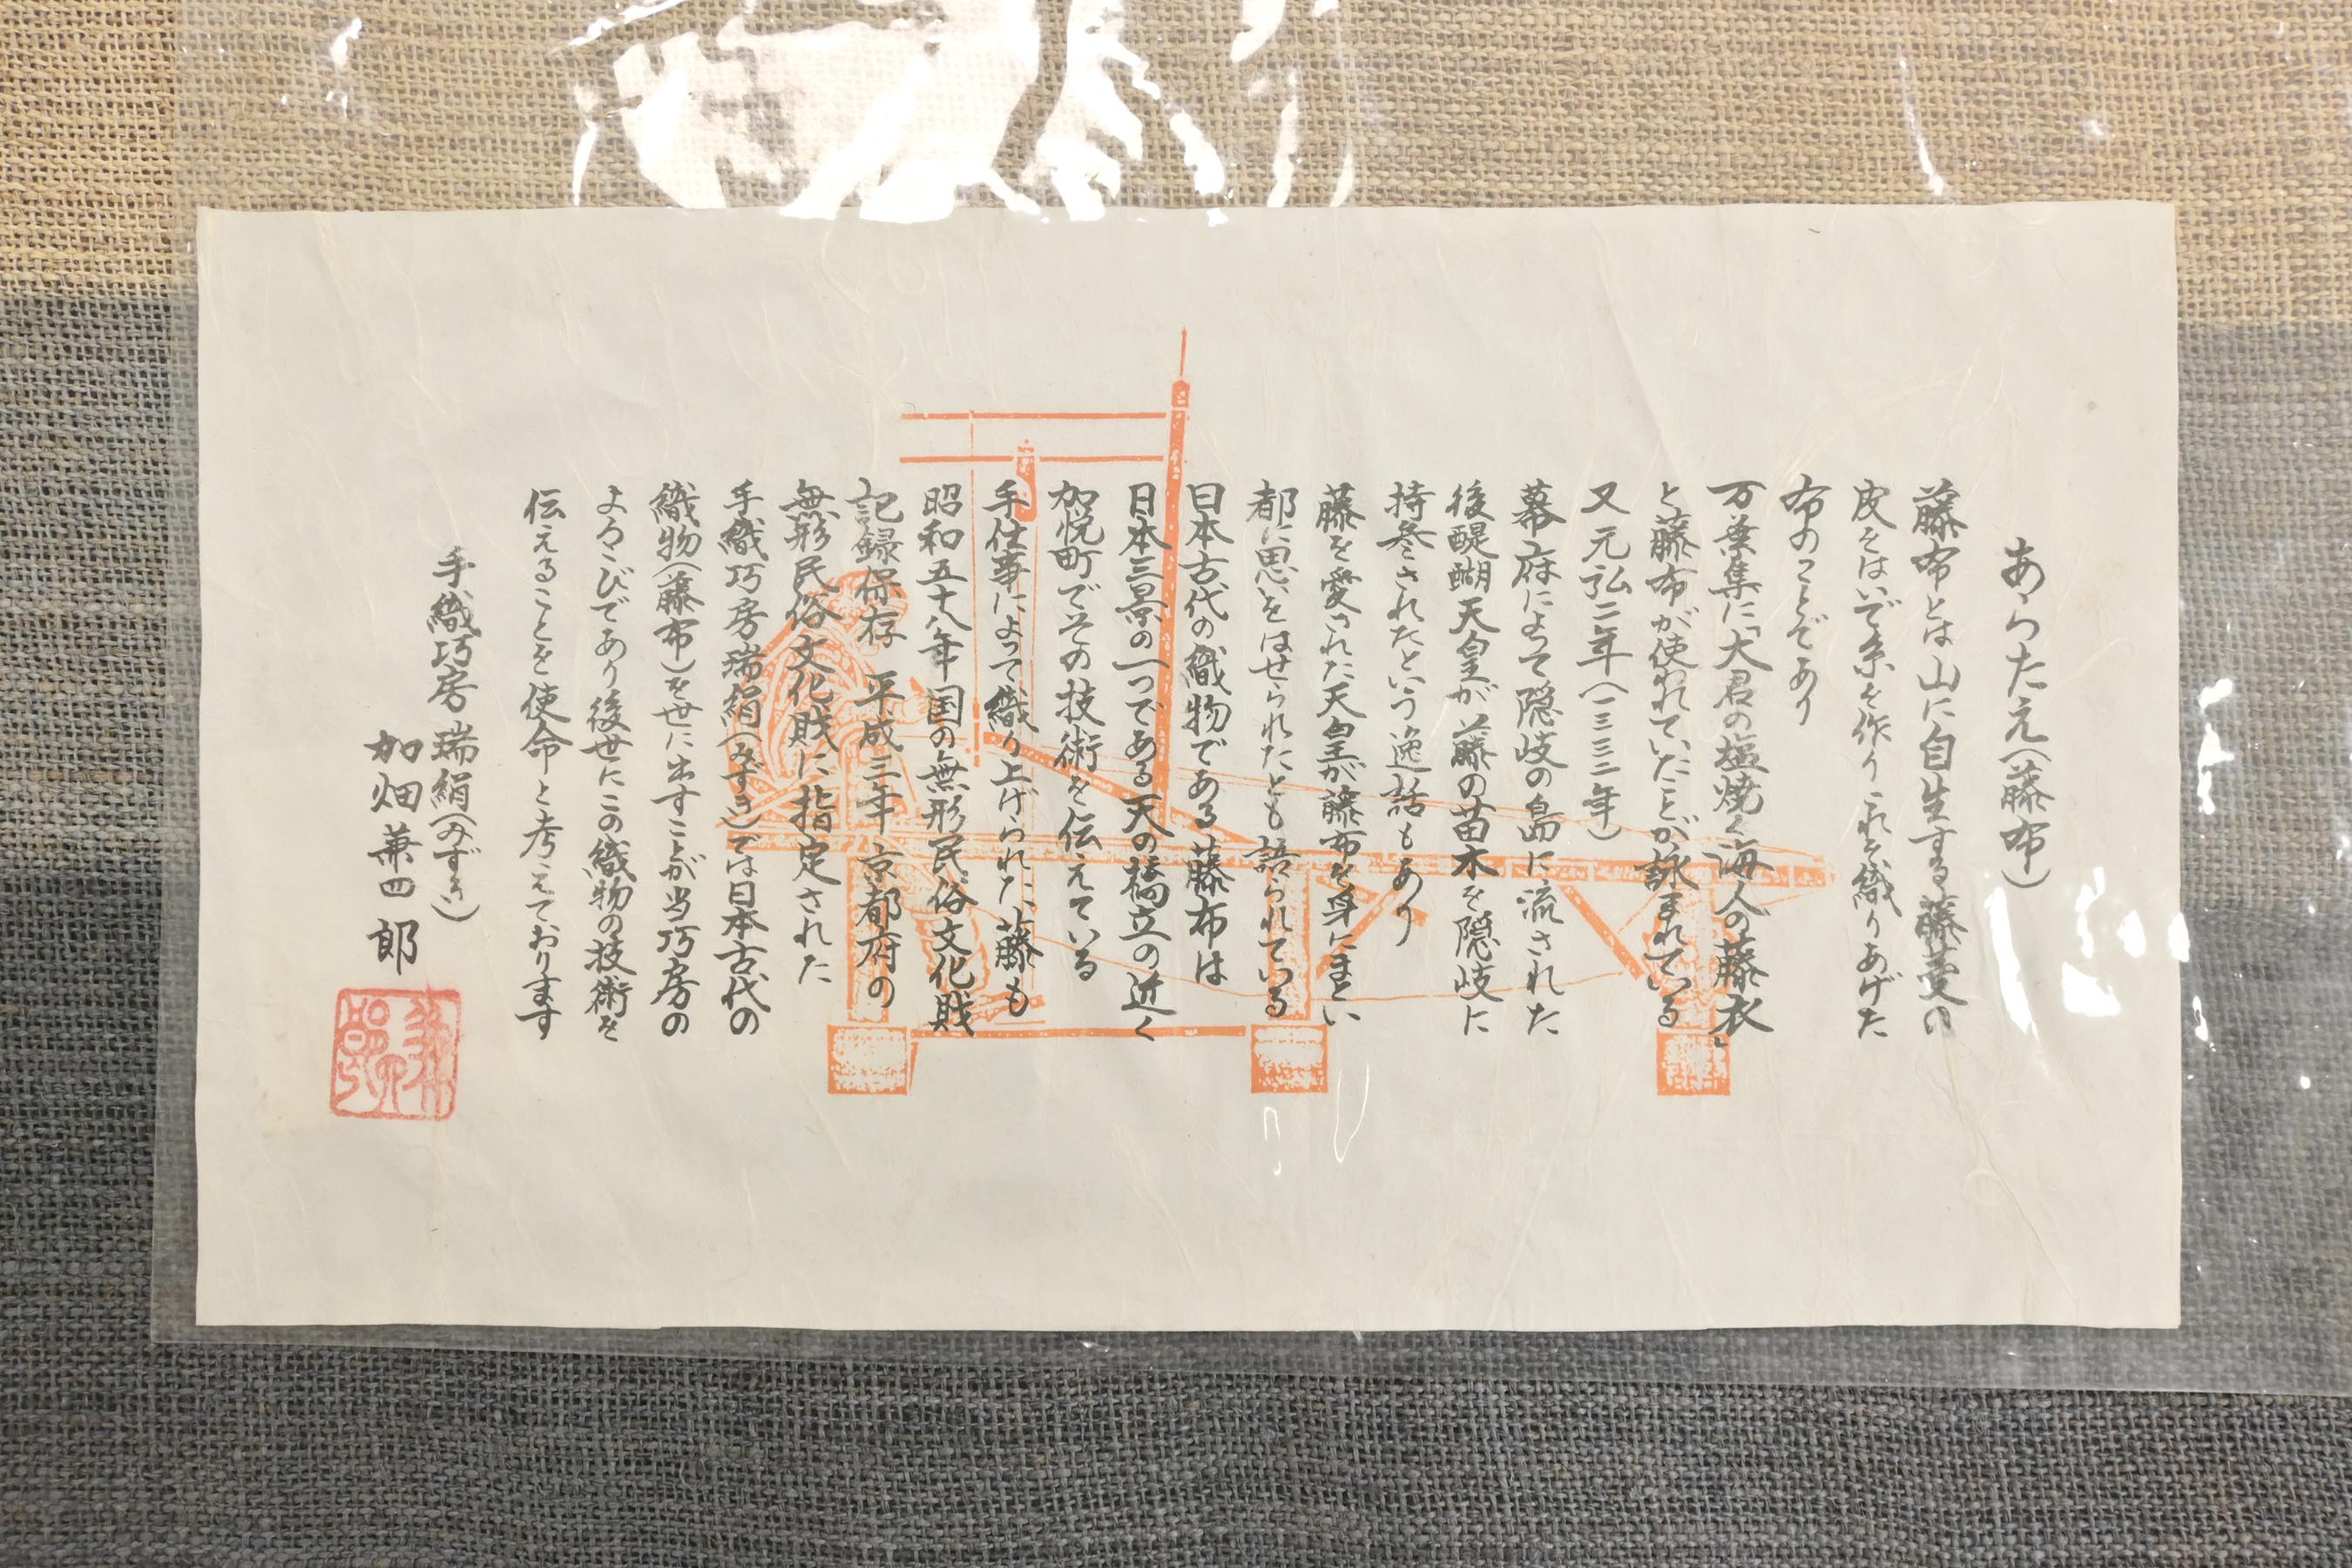 あらたえ（藤布）
藤布とは山に自生する藤蔓の
皮をはいで糸を作りこれを織りあげた
布のことであり
万葉集に「大君の塩焼く海人の藤衣」
と藤布が使われていたことが詠まれている
又元弘二年（一三三二年）
幕府によって隠岐の島に流された
後醍醐天皇が藤の苗木を隠岐に
持参されたという逸話もあり
藤を愛された天皇が藤布を身にまとい
都に思いをはせられたとも語られている
日本古代の織物である藤布は
日本三景の一つである天の橋立の近く
加悦町でその技術を伝えている
手仕事によって織り上げられた藤も
昭和五十八年国の無形民俗文化財
記録保存 平成三年京都府の
無形民俗文化財に指定された
手織巧房瑞絹（みずき）では日本古代の
織物（藤布）を世に出すことが当巧房の
よろこびであり後世にこの織物の技術を
伝えることを使命と考えております
手織巧房 瑞絹（みずき）
加畑兼四郎